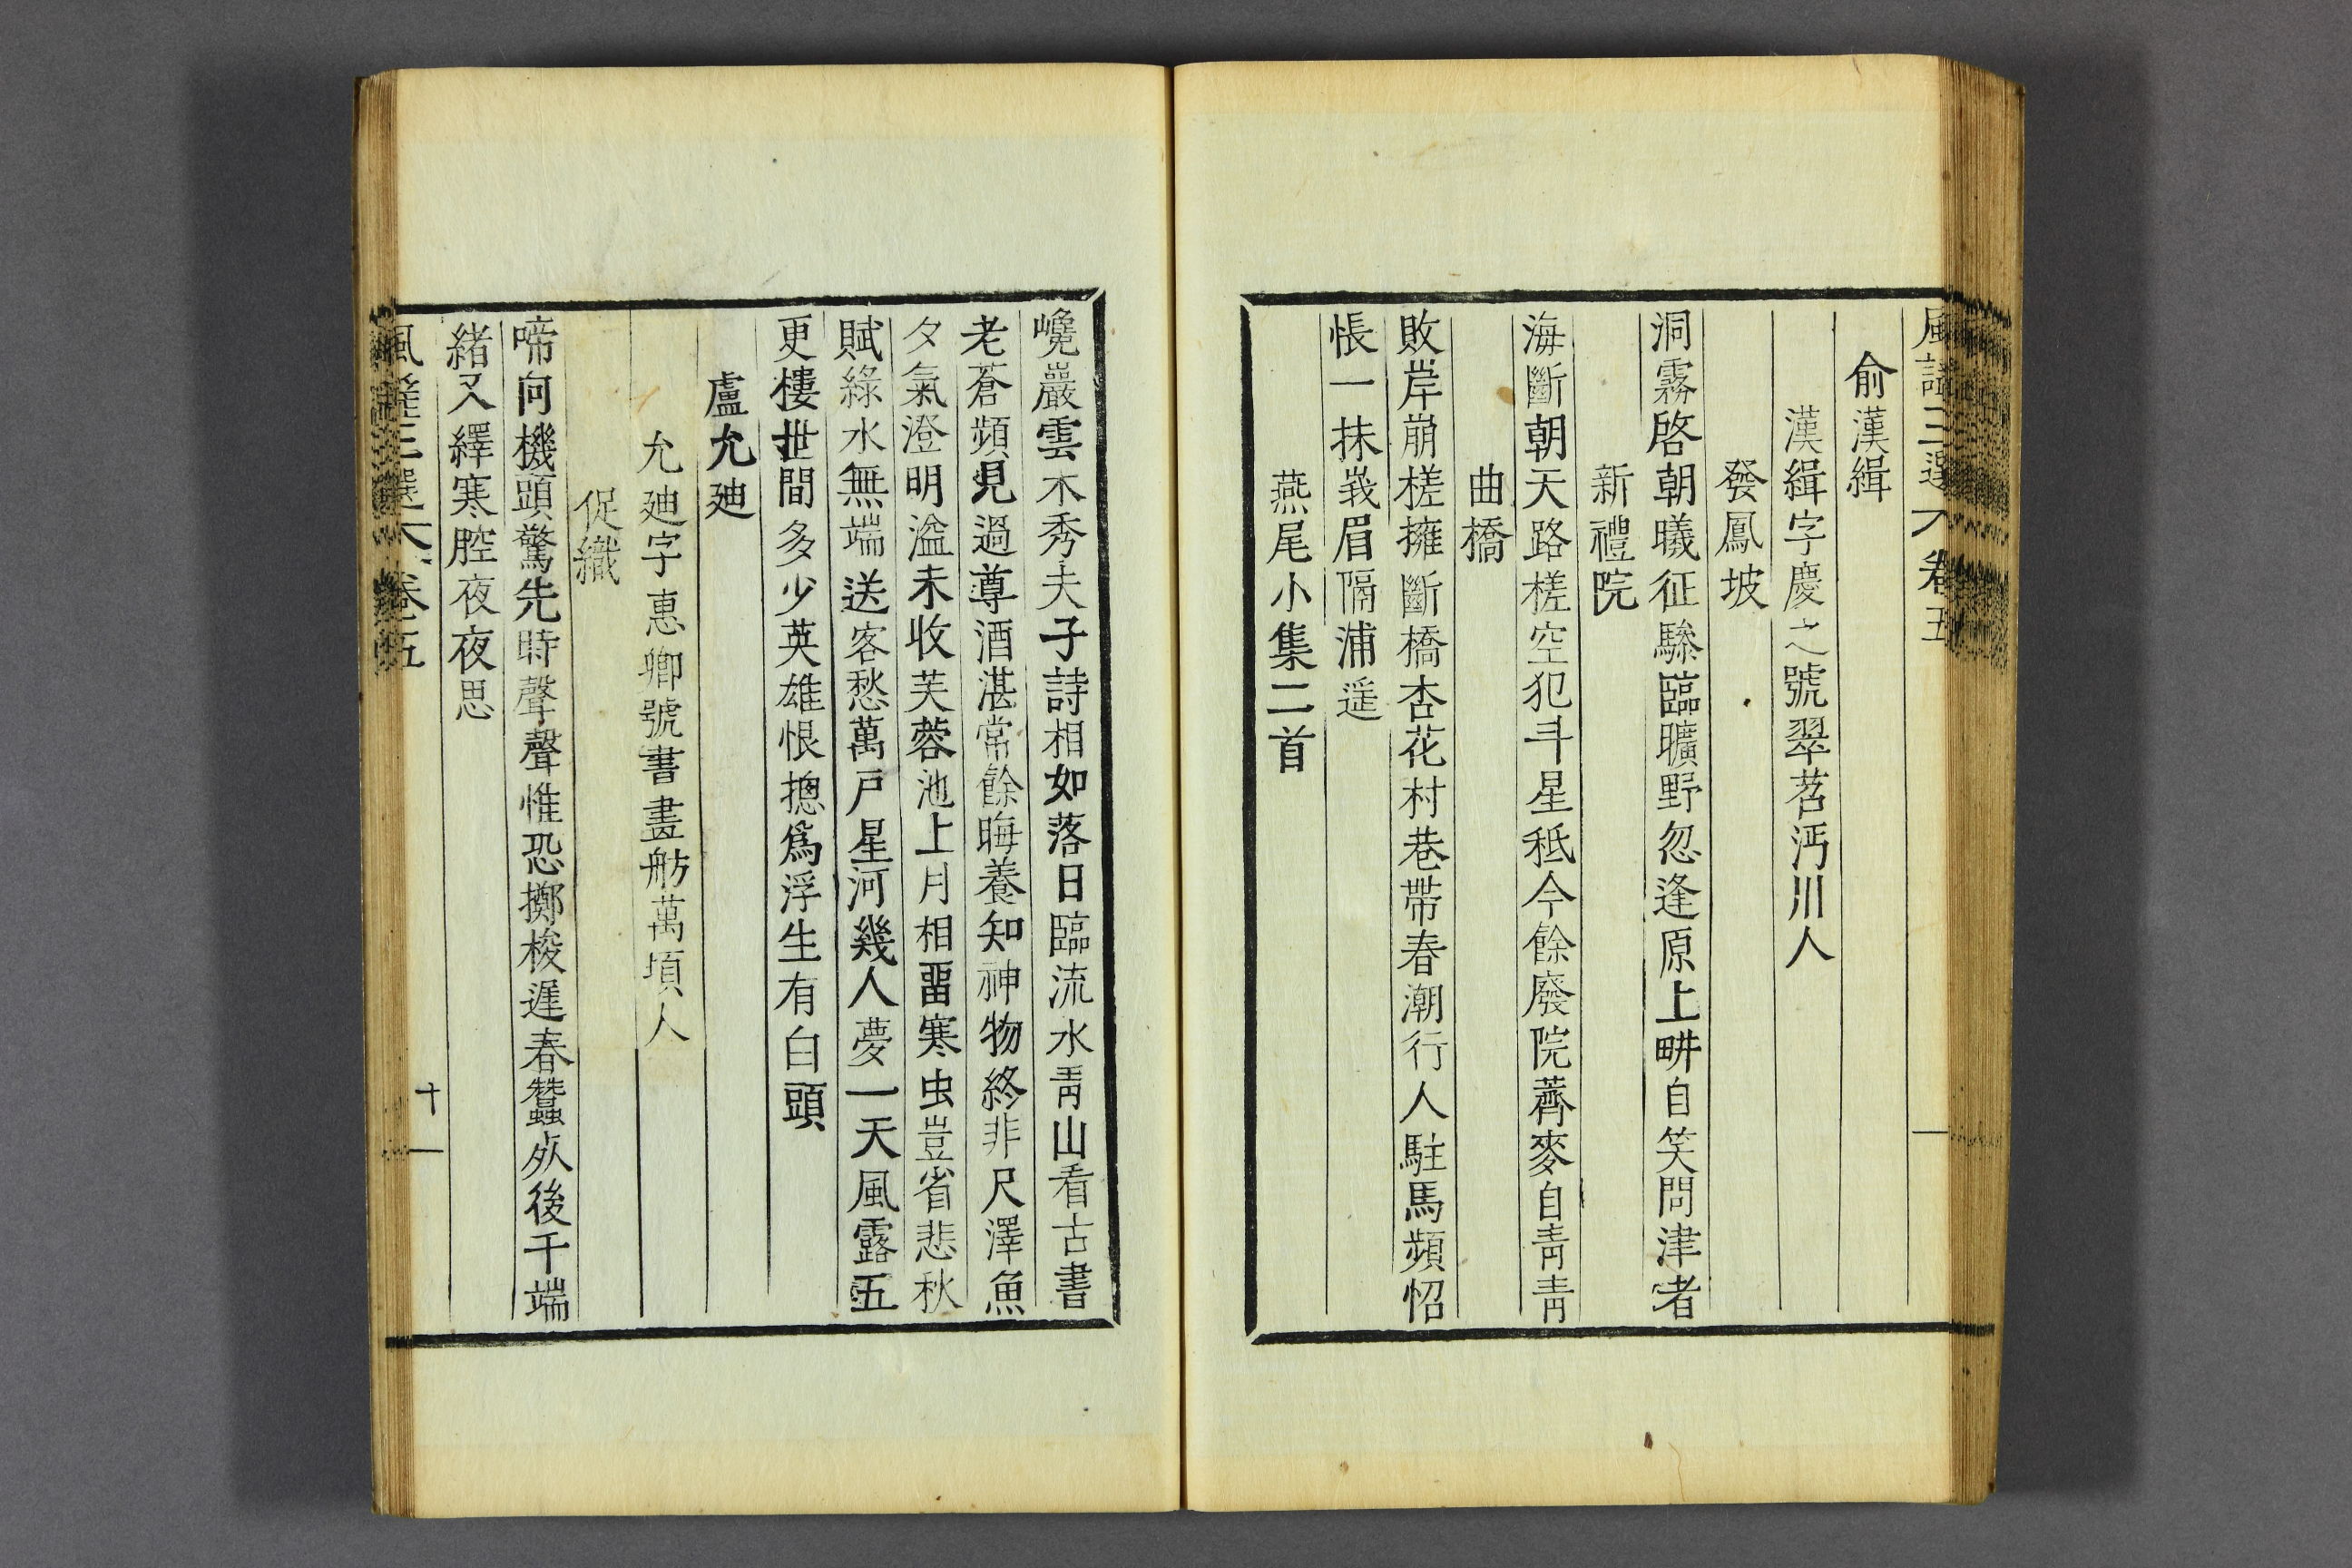 風謠三選 卷五
俞漢緝
漢緝字慶之號翠苕沔川人
發鳳坡
洞霧啓朝曦征驂臨曠野忽逢原上畊自笑問津者
新禮院
海斷朝天路槎空犯斗星秪今餘廢院薺麥自靑靑
曲橋
敗岸崩槎擁斷橋杏花村巷帶春潮行人駐馬頻怊
悵一抹峩眉隔浦遥
燕尾小集二首
巉巖雲木秀夫子詩相如落日臨流水靑山看古書
老蒼頻見過尊酒湛常餘晦養知神物終非尺澤魚
夕氣澄明溢未收芙蓉池上月相畱寒虫豈省悲秋
賦綠水無端送客愁萬戶星河幾人夢一天風露五
更樓世間多少英雄恨摠爲浮生有白頭
盧允廸
允廸字惠卿號書畫舫萬頃人
促織
啼向機頭驚先時聲聲惟恐擲梭遲春蠶死後千端
緖又繹寒腔夜夜思
風謠三選 卷五
十